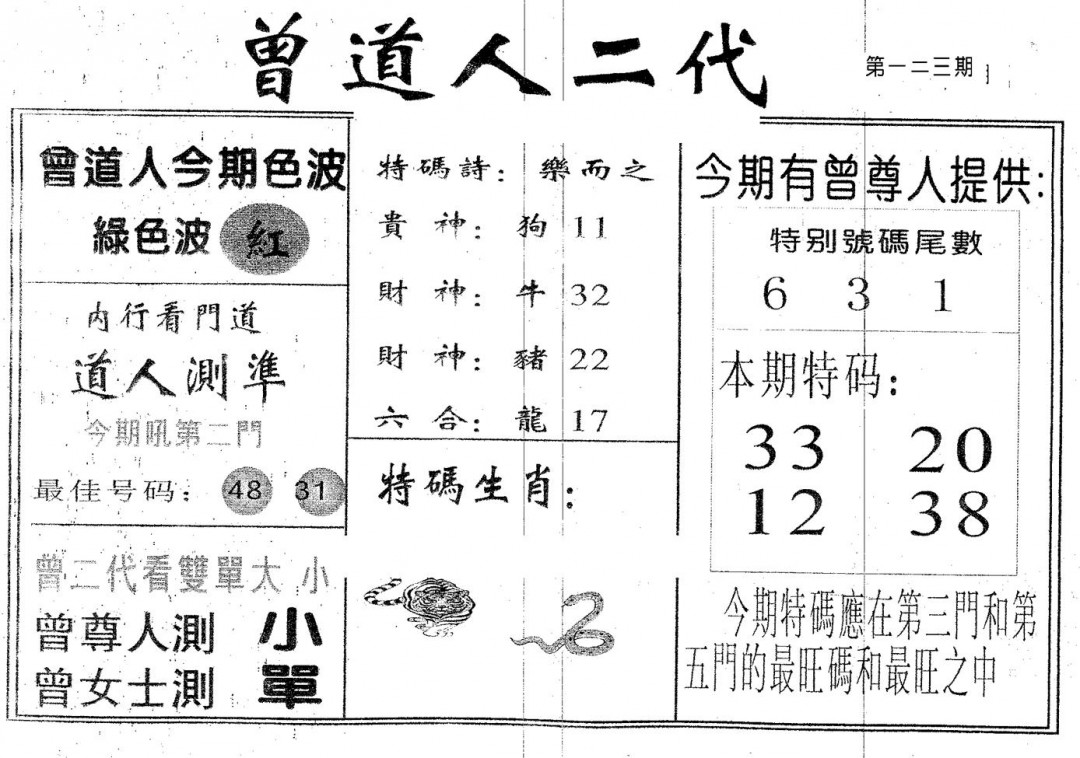 曾道人二代
第一二三期
曾道人今期色波
綠色波 紅
内行看門道
道人測準
今期吼第二門
最佳号码： 48 31
曾二代看雙單大 小
曾尊人測 小
曾女士測 單
特碼詩：樂而之
貴神：狗 11
財神：牛 32
財神：豬 22
六合：龍 17
特碼生肖：
今期有曾尊人提供:
特别號碼尾數
6 3 1
本期特码：
33 20
12 38
今期特碼應在第三門和第
五門的最旺碼和最旺之中